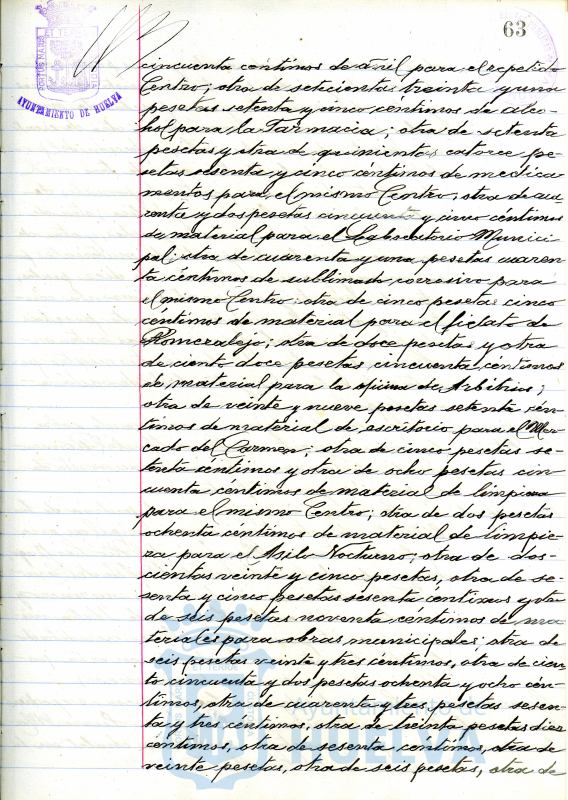 63
AYUNTAMIENTO DE HUELVA
cincuenta centimos de añil para el repetido
Centro; otra de setecientas treinta y una
pesetas setenta y cinco céntimos de alco-
hol para la Farmacia; otra de setenta
pesetas y otra de quinientas catorce pe-
setas sesenta y cinco céntimos de medica
mentos para el mismo Centro; otra de cua
renta y dos pesetas cincuenta y cinco céntimos
de material para el Laboratorio Munici
pal; otra de cuarenta y una pesetas cuaren
ta céntimos de sublimado corrosivo para
el mismo Centro; otra de cinco pesetas cinco
céntimos de material para el fielato de
Romeralejo; otra de doce pesetas y otra
de ciento doce pesetas cincuenta céntimos
de material para la oficina de Arbitrios;
otra de veinte y nueve pesetas setenta cén
timos de material de escritorio para el Mer
cado del Carmen; otra de cinco pesetas se-
tenta céntimos y otra de ocho pesetas cin
cuenta céntimos de material de limpieza
para el mismo Centro; otra de dos pesetas
ochenta céntimos de material de limpie
za para el Asilo Nocturno; otra de dos-
cientas veinte y cinco pesetas, otra de se-
senta y cinco pesetas sesenta céntimos y otra
de seis pesetas noventa céntimos de ma
teriales para obras municipales; otra de
seis pesetas veinte y tres céntimos, otra de cien
to cincuenta y dos pesetas ochenta y ocho cén-
timos, otra de cuarenta y tres pesetas sesen-
ta y tres céntimos, otra de treinta pesetas diez
céntimos, otra de sesenta céntimos, otra de
veinte pesetas, otra de seis pesetas, otra de
Ayuntamiento de
HUELVA